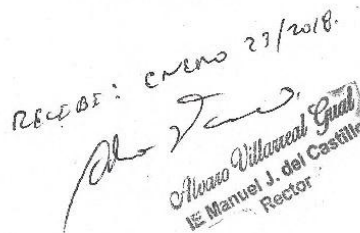 RECIBE: ENERO 23/2018.
Alvaro Villarreal Gual
IE Manuel J. del Castillo
Rector